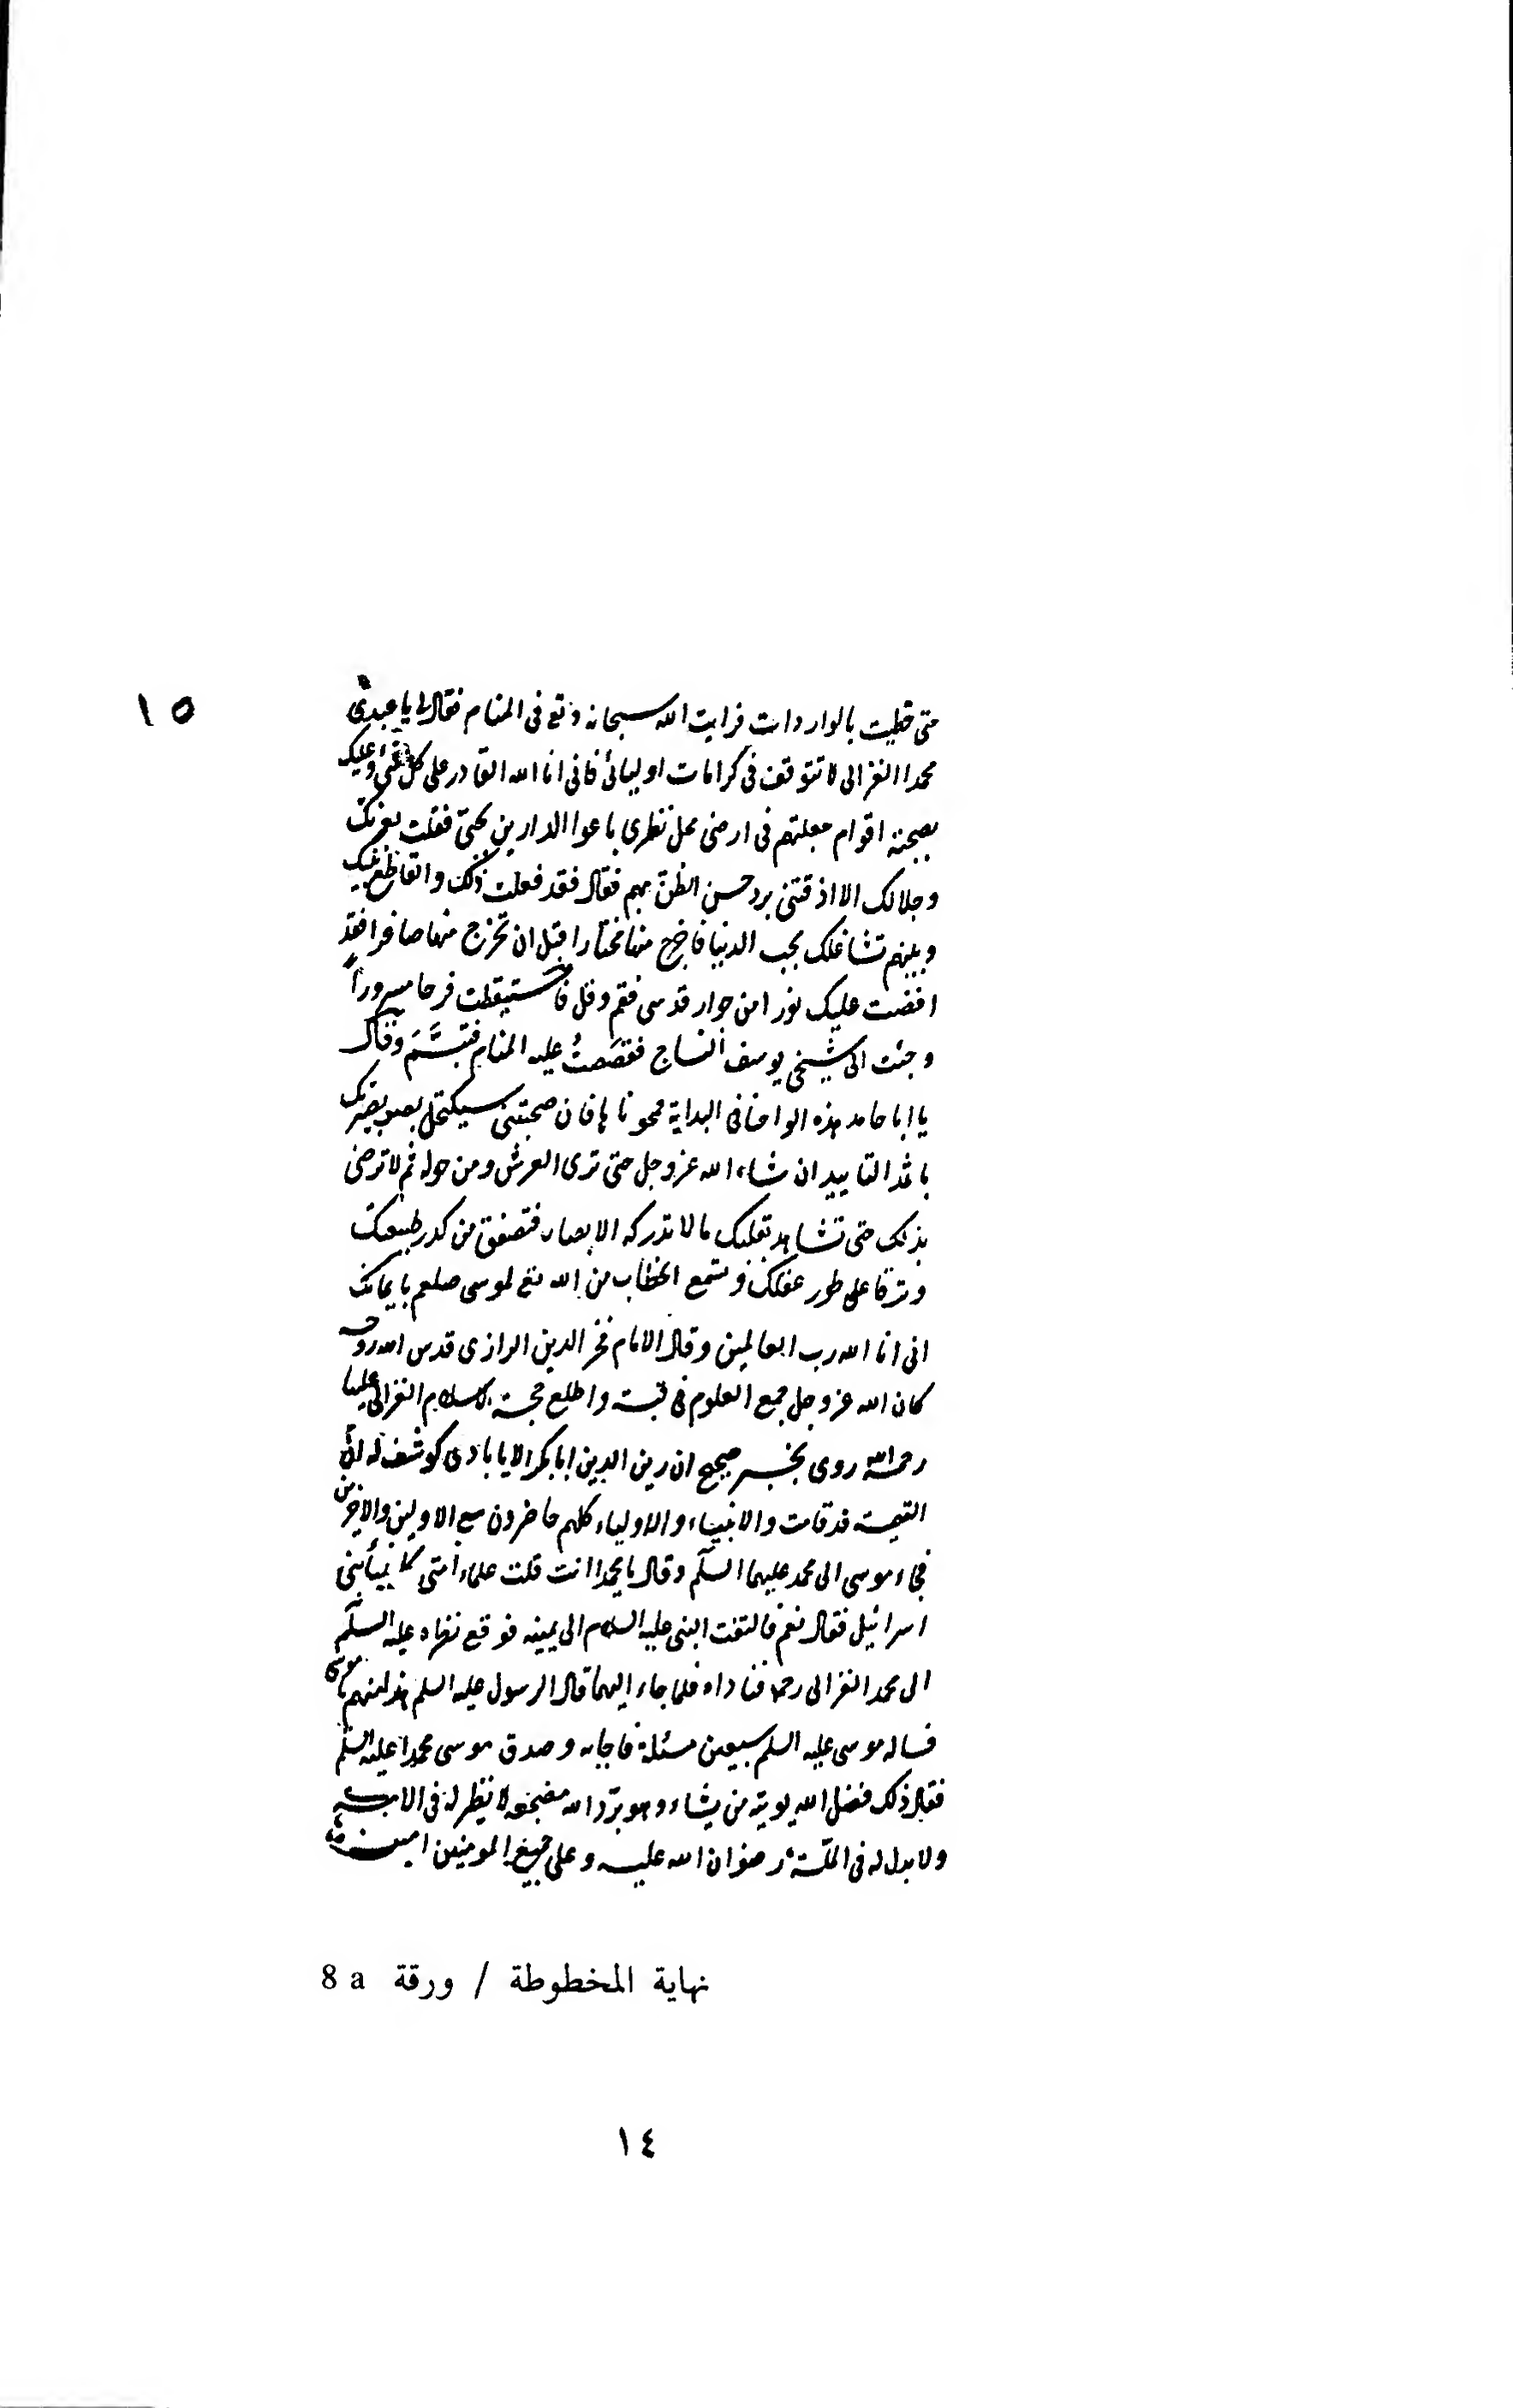 ١٥
حتى حظيت بالواردات فرايت الله سبحانه وتع فى المنام فقال لى يا عبدى
محمدا الغزالى لا تتوقف فى كرامات اوليائى فانى انا الله القادر على كل شىء وعليك
بصحبة اقوام جعلتهم فى ارضى محل نظرى باعوا الدارين بحبى فقلت بعزتك
وجلالك الا اذقتنى برد حسن الظن بهم فقال فقد فعلت ذلك والقاطع بينك
وبينهم تشاغلك بحب الدنيا فاخرج منها مختارا قبل ان تخرج منها صاغرا فقد
افضت عليك نورا من جوار قدسى فقم وقل فاستيقظت فرحا مسرورا
وجئت الى شيخى يوسف النساج فقصصت عليه المنام فتبسم وقال
يا ابا حامد هذه الواحنا فى البداية محوناها فان صحبتنى سيكتحل بصر بصيرتك
باثمد التاييد ان شاء الله عز وجل حتى ترى العرش ومن حوله ثم لا ترضى
بذلك حتى تشاهد بقلبك ما لا تدركه الابصار فتصفى من كدر طبيعتك
وترقا على طور عقلك وتسمع الخطاب من الله تع لموسى صلعم بايمانك
انى انا الله رب العالمين وقال الامام فخر الدين الرازى قدس الله روحه
كان الله عز وجل جمع العلوم فى قبة واطلع حجة الاسلام الغزالى عليها
رحمه الله روى بخبر صحيح ان زين الدين ابا بكر الايابادى كوشف له ان
القيمة قد قامت والانبياء والاولياء كلهم حاضرون مع الاولين والاخرين
فجاء موسى الى محمد عليهما السلم وقال يا محمد انت قلت علماء امتى كانبياء بنى
اسرائيل فقال نعم فالتفت النبى عليه السلام الى يمينه فوقع نظره عليه السلم
الى محمد الغزالى رحمه فناداه فلما جاء اليهما قال الرسول عليه السلم هذا منهم يا موسى
فساله موسى عليه السلم سبعين مسئلة فاجابه وصدق موسى محمدا عليه السلم
فقال ذلك فضل الله يوتيه من يشاء وهو برّد الله مضجعه لا نظير له فى الامة
ولا بدل له فى الملة رضوان الله عليه وعلى جميع المومنين امين
نهاية المخطوطة / ورقة 8 a
١٤